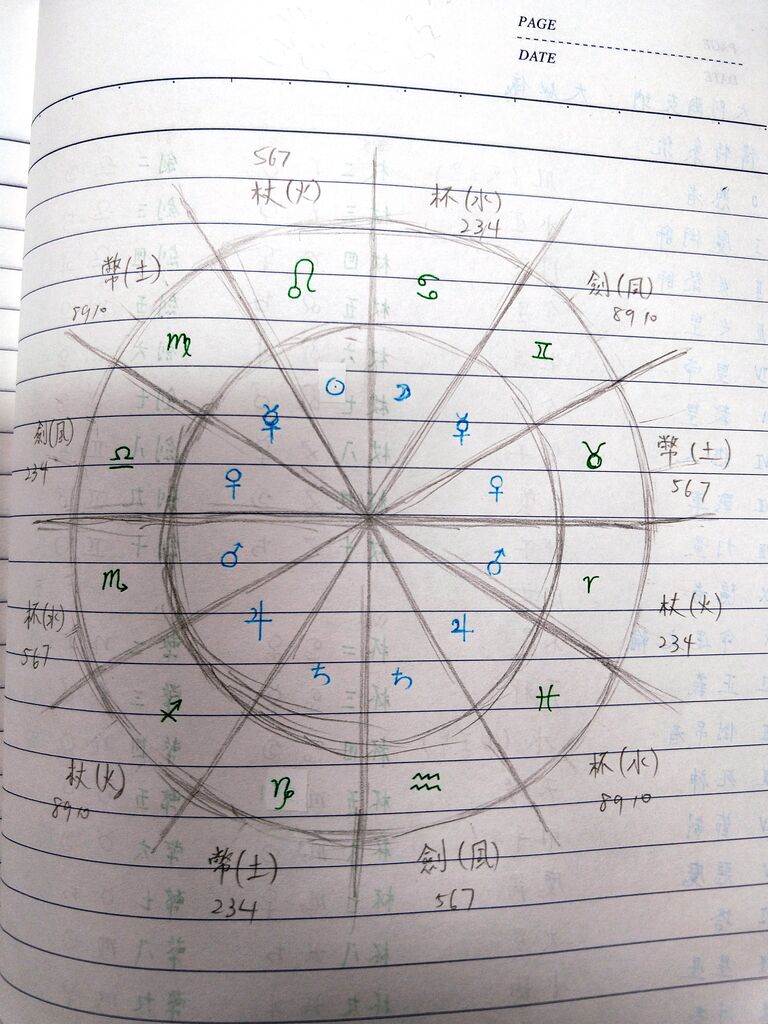 PAGE
DATE
567
杖(火)
杯(水)
234
幣(土)
8910
劍(風)
8910
♌
♋
♍
♊
☉
☽
☿
☿
劍(風)
234
♎
♀
♀
♉
幣(土)
567
♏
♂
♂
♈
杯(水)
567
杖(火)
234
♃
♃
♐
♄
♄
♓
杖(火)
8910
♑
♒
杯(水)
8910
幣(土)
234
劍(風)
567